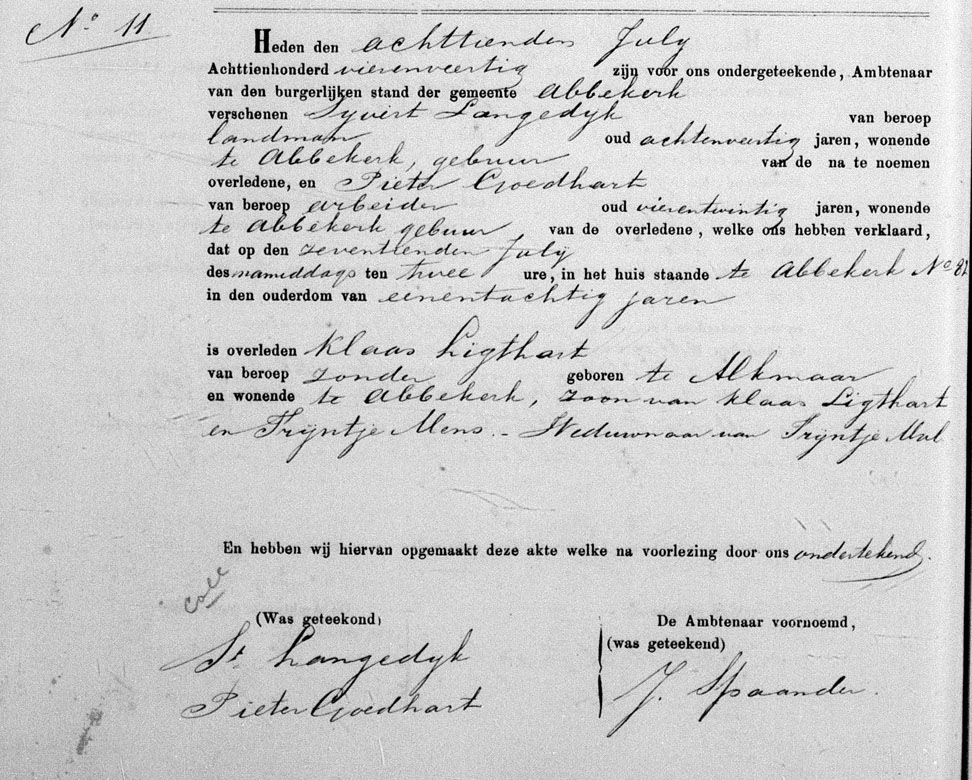 No. 11
Heden den achttienden July
Achttienhonderd vierenveertig zijn voor ons ondergeteekende, Ambtenaar
van den burgerlijken stand der gemeente Abbekerk
verschenen Syvert Langedyk van beroep
landman oud achtenveertig jaren, wonende
te Abbekerk, gebuur van de na te noemen
overledene, en Pieter Goedhart
van beroep arbeider oud vierentwintig jaren, wonende
te Abbekerk gebuur van de overledene, welke ons hebben verklaard,
dat op den zeventienden July
des namiddags ten twee ure, in het huis staande te Abbekerk No. 82
in den ouderdom van eenentachtig jaren
is overleden Klaas Ligthart
van beroep zonder geboren te Alkmaar
en wonende te Abbekerk, zoon van Klaas Ligthart
en Trijntje Mens. - Weduwnaar van Trijntje Mul
En hebben wij hiervan opgemaakt deze akte welke na voorlezing door ons ondertekend.
Coll
(Was geteekond) De Ambtenaar voornoemd,
(was geteekend)
St Langedyk
J. Spaander.
Pieter Goedhart